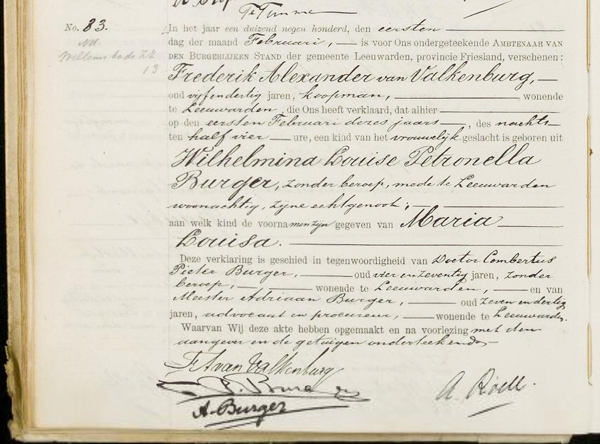 No. 83.
In het jaar een duizend negen honderd, den eersten
dag der maand Februari, is voor Ons ondergeteekende AMBTENAAR VAN
DEN BURGERLIJKEN STAND der gemeente Leeuwarden, provincie Friesland, verschenen:
Frederik Alexander van Valkenburg,
oud vijfendertig jaren, koopman, wonende
te Leeuwarden, die Ons heeft verklaard, dat alhier
op den eersten Februari dezes jaars, des nachts
ten half vier ure, een kind van het vrouwelijk geslacht is geboren uit
Wilhelmina Louise Petronella
Burger, zonder beroep, mede te Leeuwarden
woonachtig, zijne echtgenoot;
aan welk kind de voornamen zijn gegeven van Maria
Louisa.
Deze verklaring is geschied in tegenwoordigheid van Doctor Combertus
Pieter Burger, oud vier en zeventig jaren, zonder
beroep, wonende te Leeuwarden, en van
Meester Adriaan Burger, oud zeven en dertig
jaren, advocaat en procureur, wonende te Leeuwarden.
Waarvan Wij deze akte hebben opgemaakt en na voorlezing met den
aangever en de getuigen onderteekend.
F A van Valkenburg
A. Burger
A. Röell.